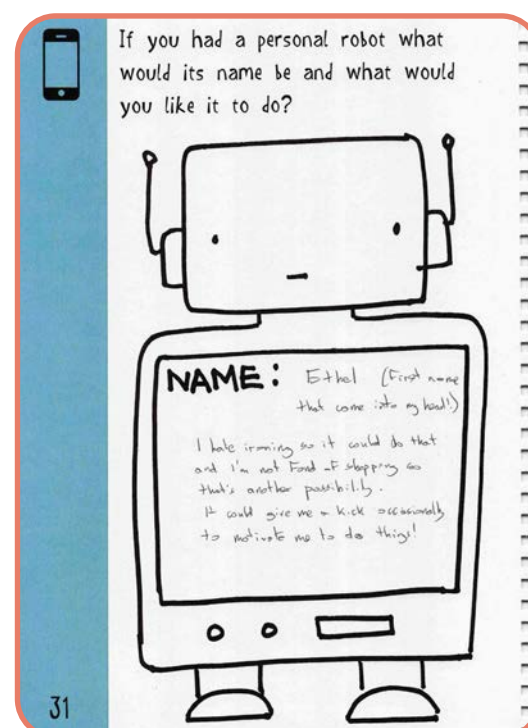 If you had a personal robot what
would its name be and what would
you like it to do?
NAME: Ethel (First name
that come into my head!)
I hate ironing so it could do that
and I'm not Fond of shopping so
that's another possibility.
It could give me a kick occasionally
to motivate me to do things!
31